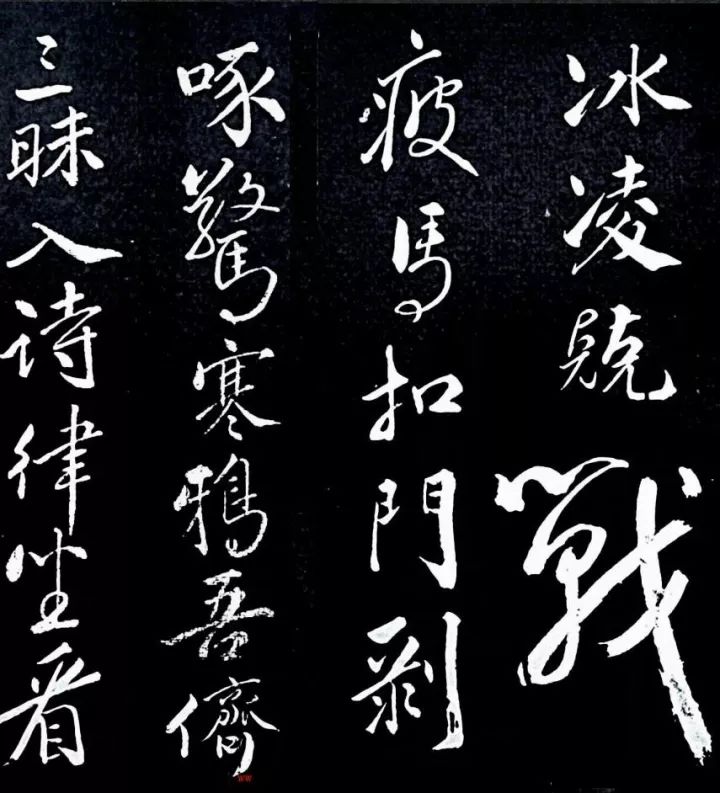 冰凌兢戰
疲馬扣門剥
啄驚寒鴉吾儕
三昧入詩律坐看
ww